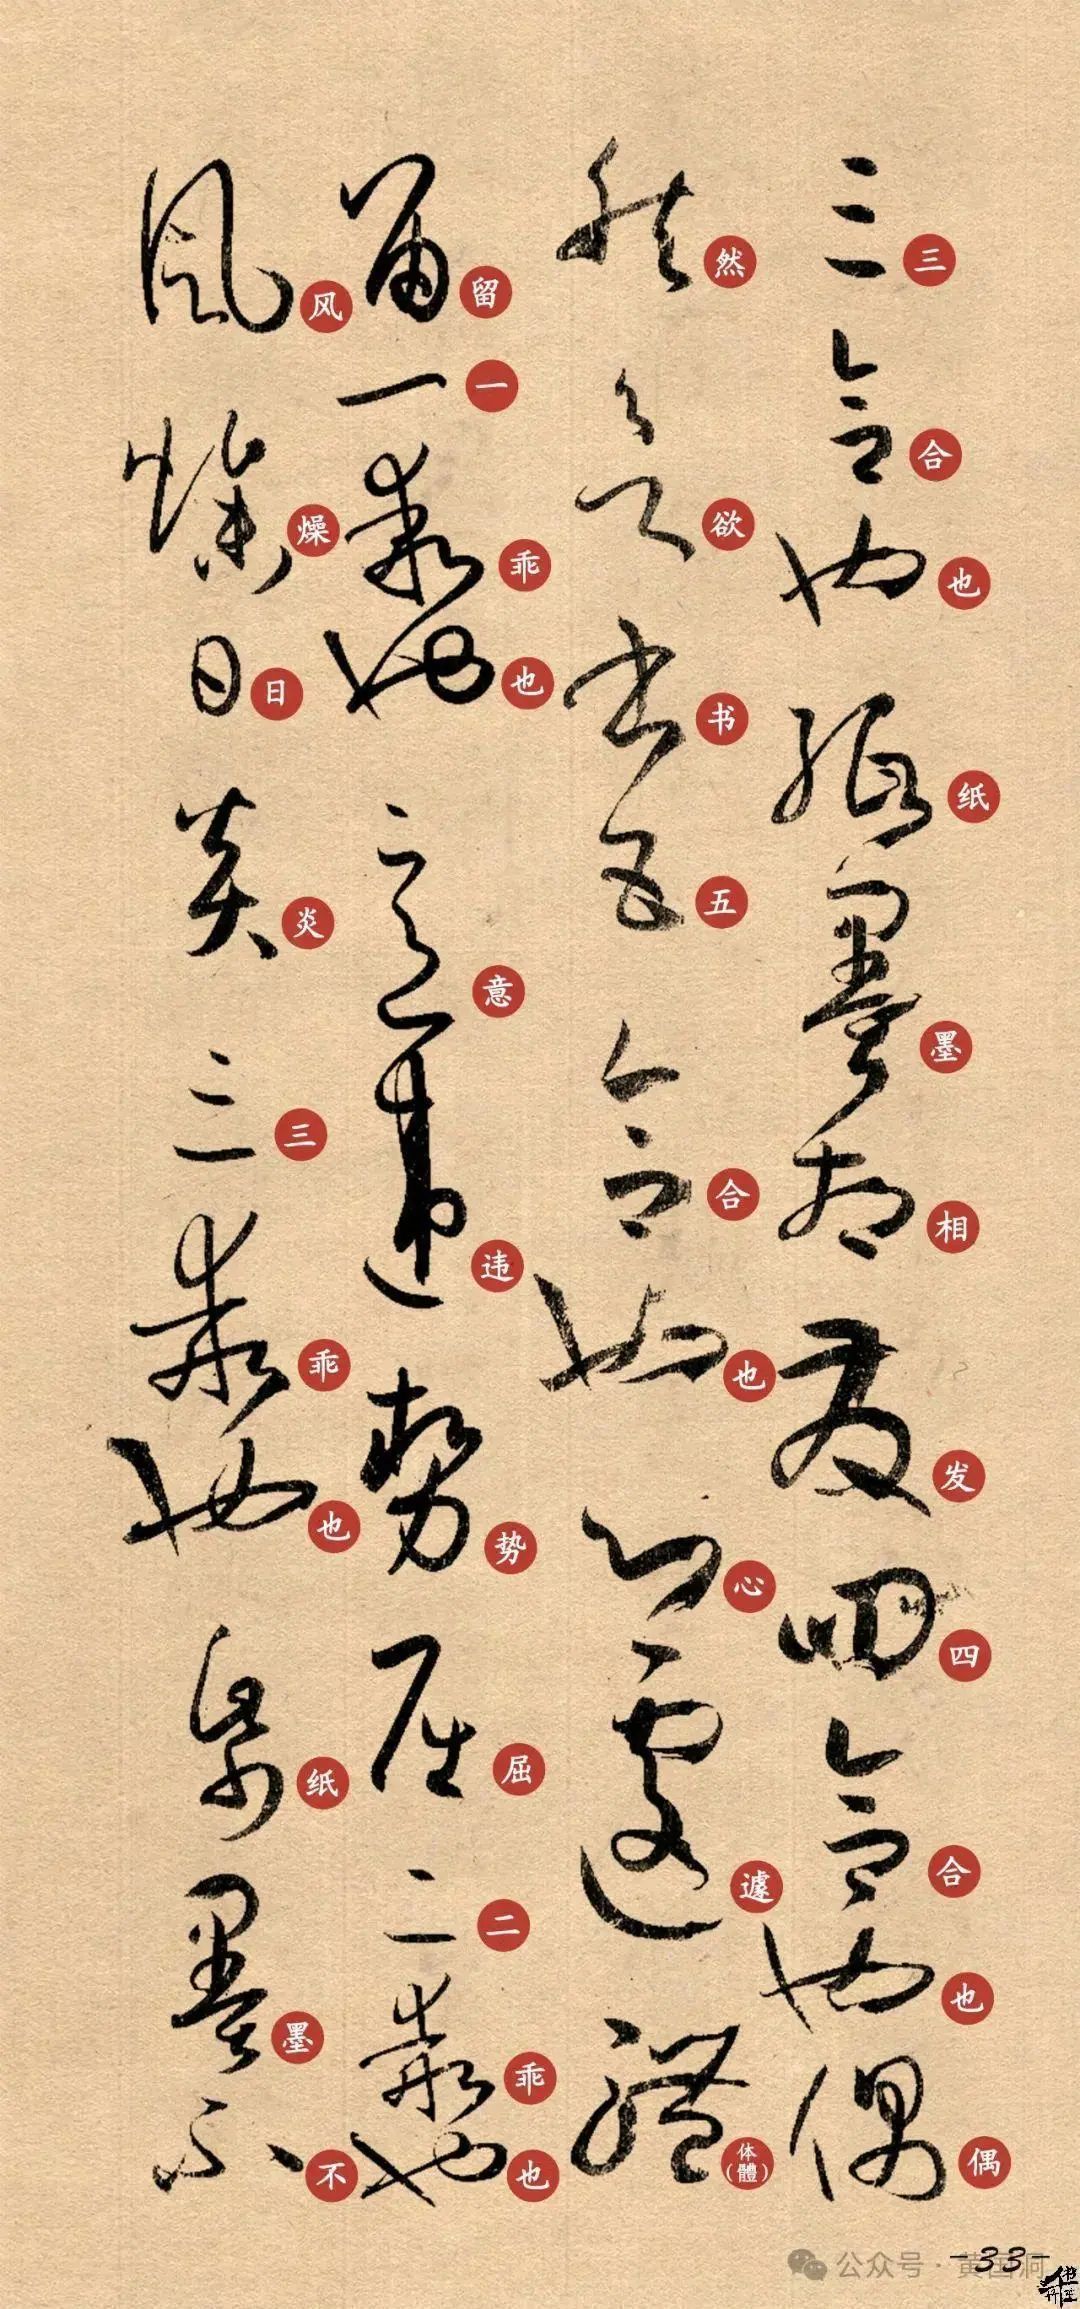 三合也纸墨相发四合也偶
然欲书五合也心遽体(體)
留一乖也意违势屈二乖也
风燥日炎三乖也纸墨不
公众号·黄国洞
-33-